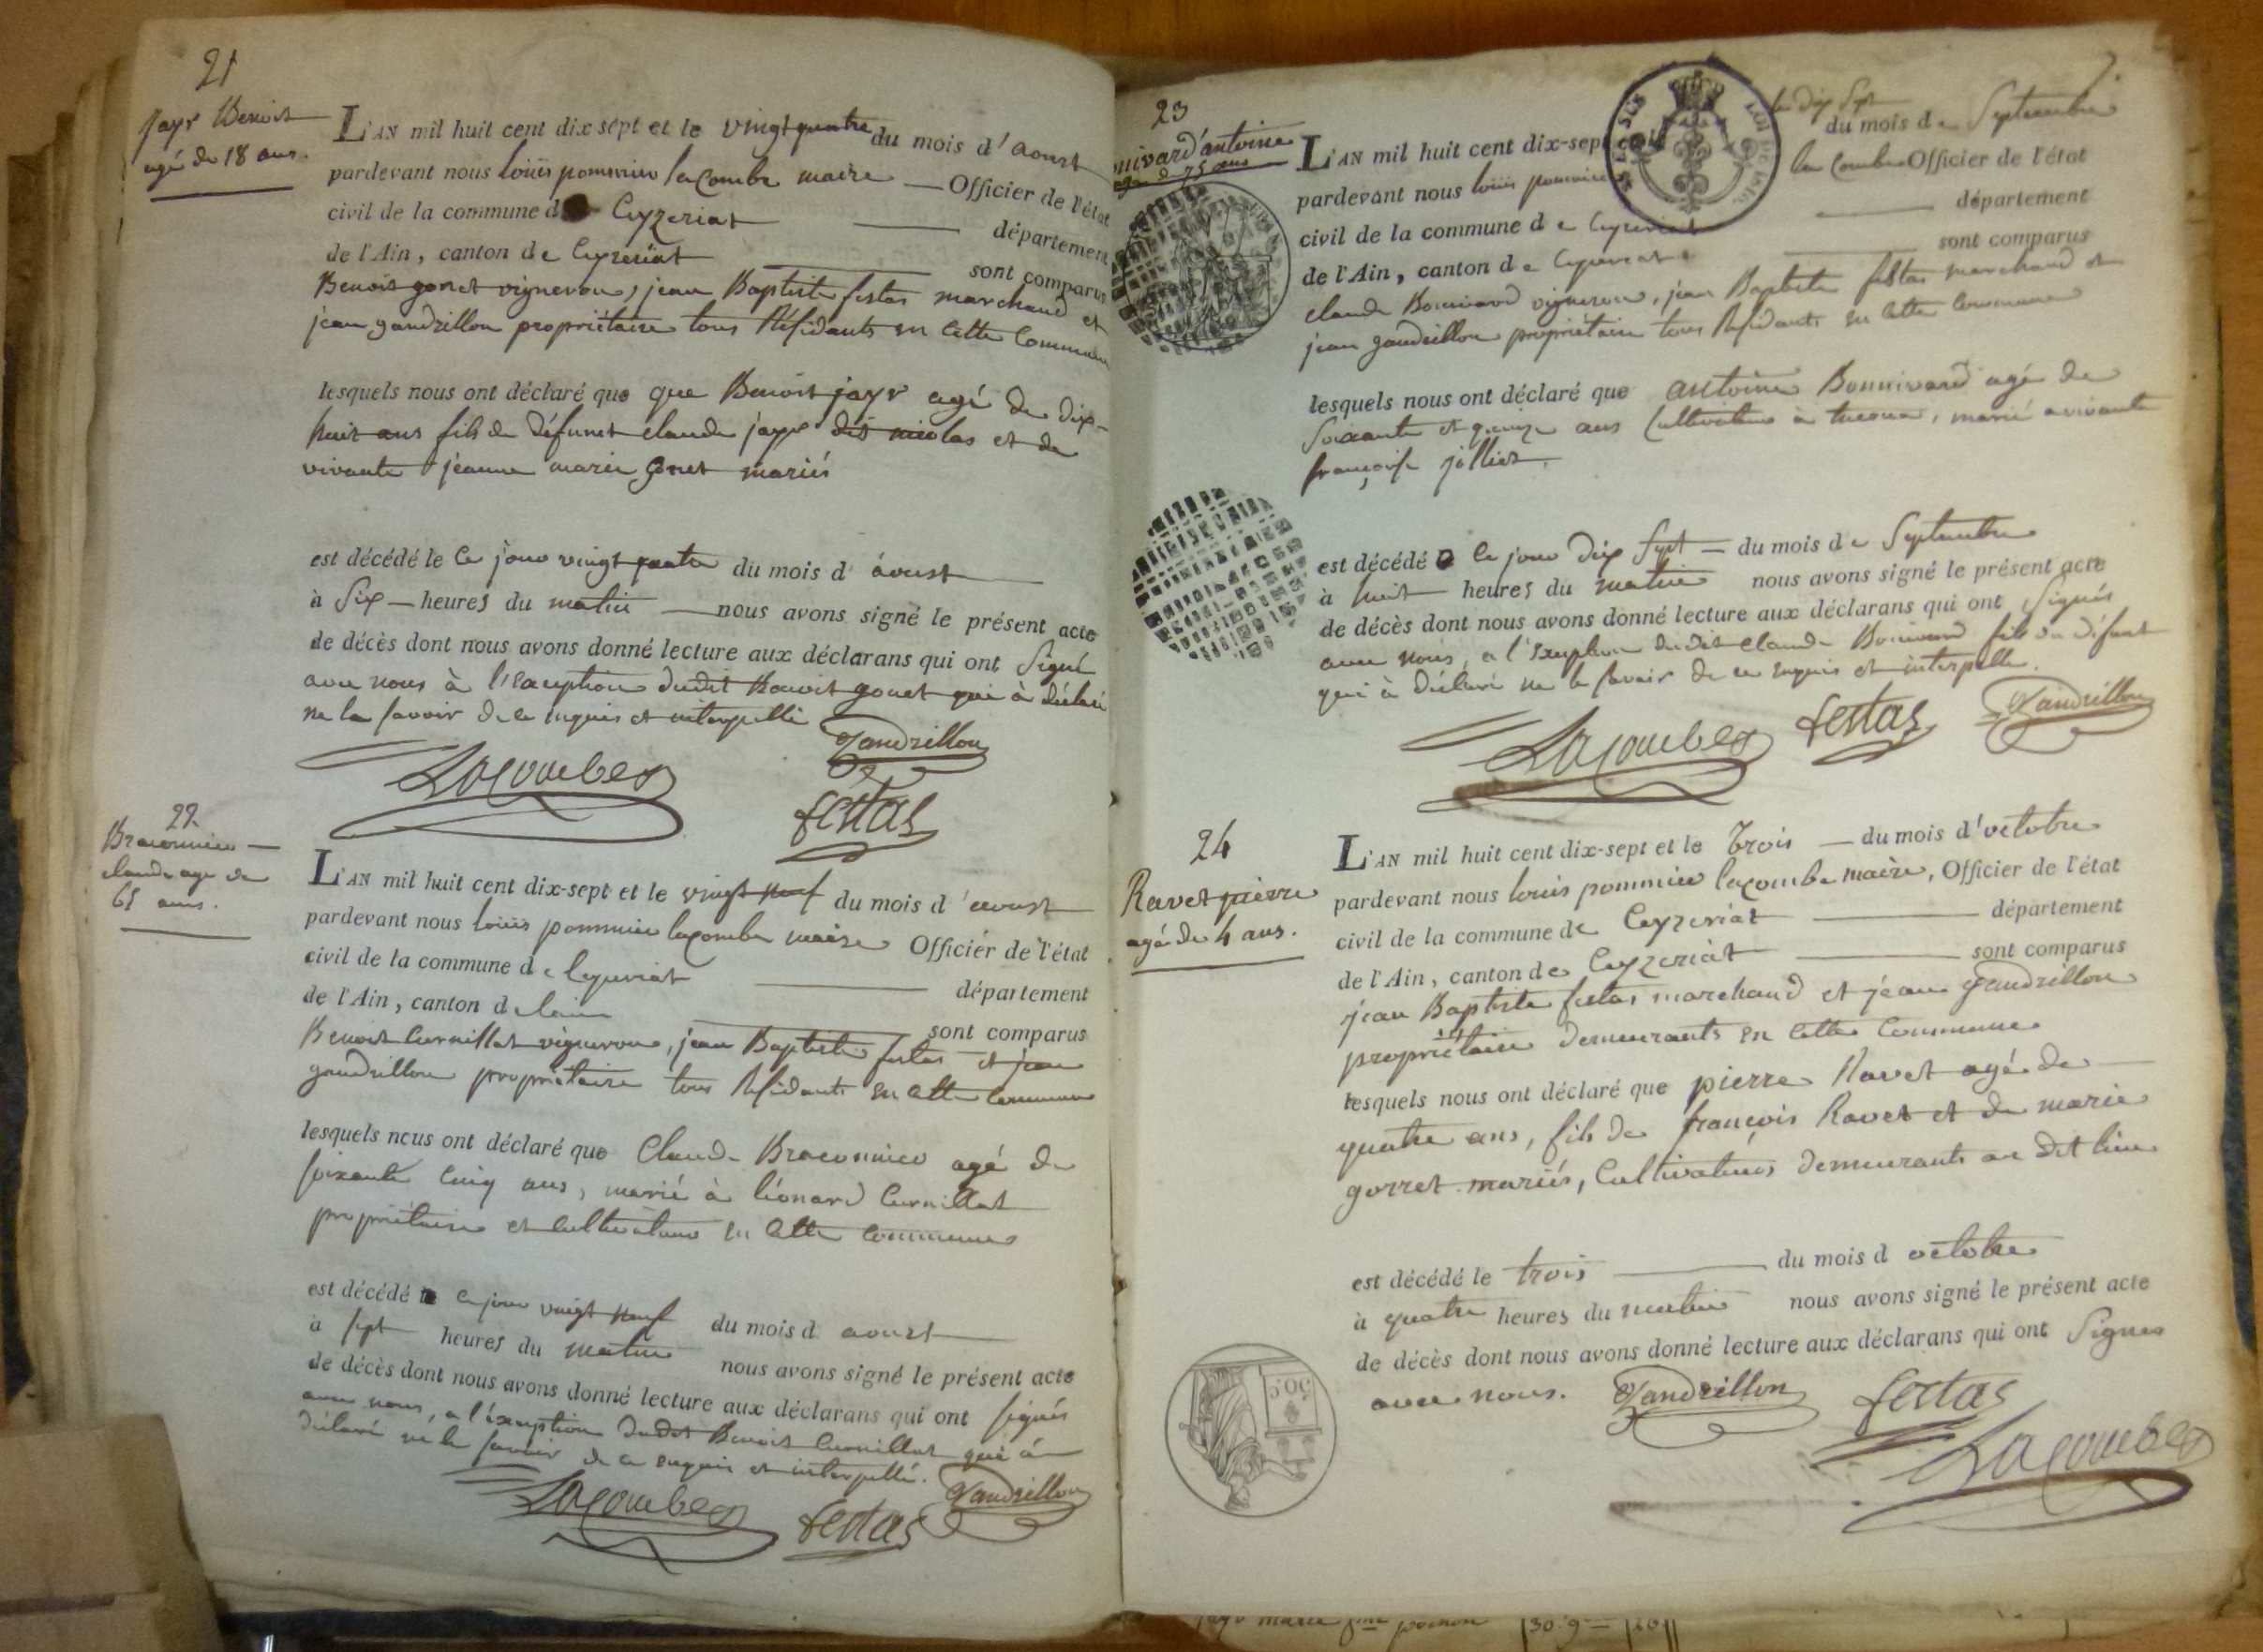 21
Jayr Benoit
agé de 18 ans.
L'AN mil huit cent dix sept et le vingt quatre du mois d'aoust
pardevant nous loüis pommier lacombe maire Officier de l'état
civil de la commune d Ceyzeriat département
de l'Ain, canton de Ceyzeriat sont comparus
Benoit gonet vigneron, jean Baptiste festas marchand et
jean gandrillon propriétaire tous Résidants en cette Commune
lesquels nous ont déclaré que que Benoit jayr agé de dix-
huit ans fils de défunct claude jayr dit nicolas et de
vivante jeanne marie gonet mariés
est décédé le ce jour vingt quatre du mois d' aoust
à Six heures du matin nous avons signé le présent acte
de décès dont nous avons donné lecture aux déclarans qui ont Signé
avec nous à l'exception dudit Benoit gonet qui à déclaré
ne le savoir de ce requis et interpellé
Gandrillon
Lacombe
festas
22
Braconnier
claude age de
65 ans.
L'AN mil huit cent dix-sept et le vingt neuf du mois d'aoust
pardevant nous loüis pommier lacombe maire Officier de l'état
civil de la commune de Ceyzeriat département
de l'Ain, canton de lain sont comparus
Benoit Curnillat vigneron, jean Baptiste festas et jean
gandrillon propriétaire tous Résidants en cette Commune
lesquels nous ont déclaré que Claude Braconnier agé de
soixante cinq ans, marié à léonard Curnillat
propriétaire et cultivateur en cette commune
est décédé le ce jour vingt neuf du mois d aoust
à sept heures du matin nous avons signé le présent acte
de décès dont nous avons donné lecture aux déclarans qui ont signés
avec nous, a l'exception dudit Benoit Curnillat qui à
déclaré ne le savoir de ce requis et interpellé.
Lacombe festas Gandrillon
23
d'antoine
agé de 75 ans
L'AN mil huit cent dix-sept et le dix Sept du mois de Septembre
pardevant nous loüis pommier la Combe Officier de l'état
civil de la commune de Ceyzeriat département
de l'Ain, canton de Ceyzeriat sont comparus
claude Bonnivard vigneron, jean Baptiste festas marchand et
jean gandrillon propriétaire tous Résidants en cette Commune
lesquels nous ont déclaré que antoine Bonnivard agé de
soixante et quinze ans Cultivateur à marié a vivante
françoise jillier.
est décédé ce jour dix sept du mois de Septembre
à huit heures du matin nous avons signé le présent acte
de décès dont nous avons donné lecture aux déclarans qui ont Signés
avec nous, a l'exception dudit claude Bonnivard fils du défunt
qui à déclaré ne le savoir de ce requis et interpellé.
Lacombe festas Gandrillon
24
Ravet pierre
agé de 4 ans.
L'AN mil huit cent dix-sept et le Trois du mois d'octobre
pardevant nous loüis pommier lacombe maire, Officier de l'état
civil de la commune de Ceyzeriat département
de l'Ain, canton de Ceyzeriat sont comparus
jean Baptiste festas marchand et jean gandrillon
propriétaire demeurants en cette Commune
lesquels nous ont déclaré que pierre Ravet agé de
quatre ans, fils de françois Ravet et de marie
gorret mariés, Cultivateurs demeurants au dit lieu
est décédé le trois du mois d octobre
à quatre heures du matin nous avons signé le présent acte
de décès dont nous avons donné lecture aux déclarans qui ont Signés
avec nous. Gandrillon festas
Lacombe